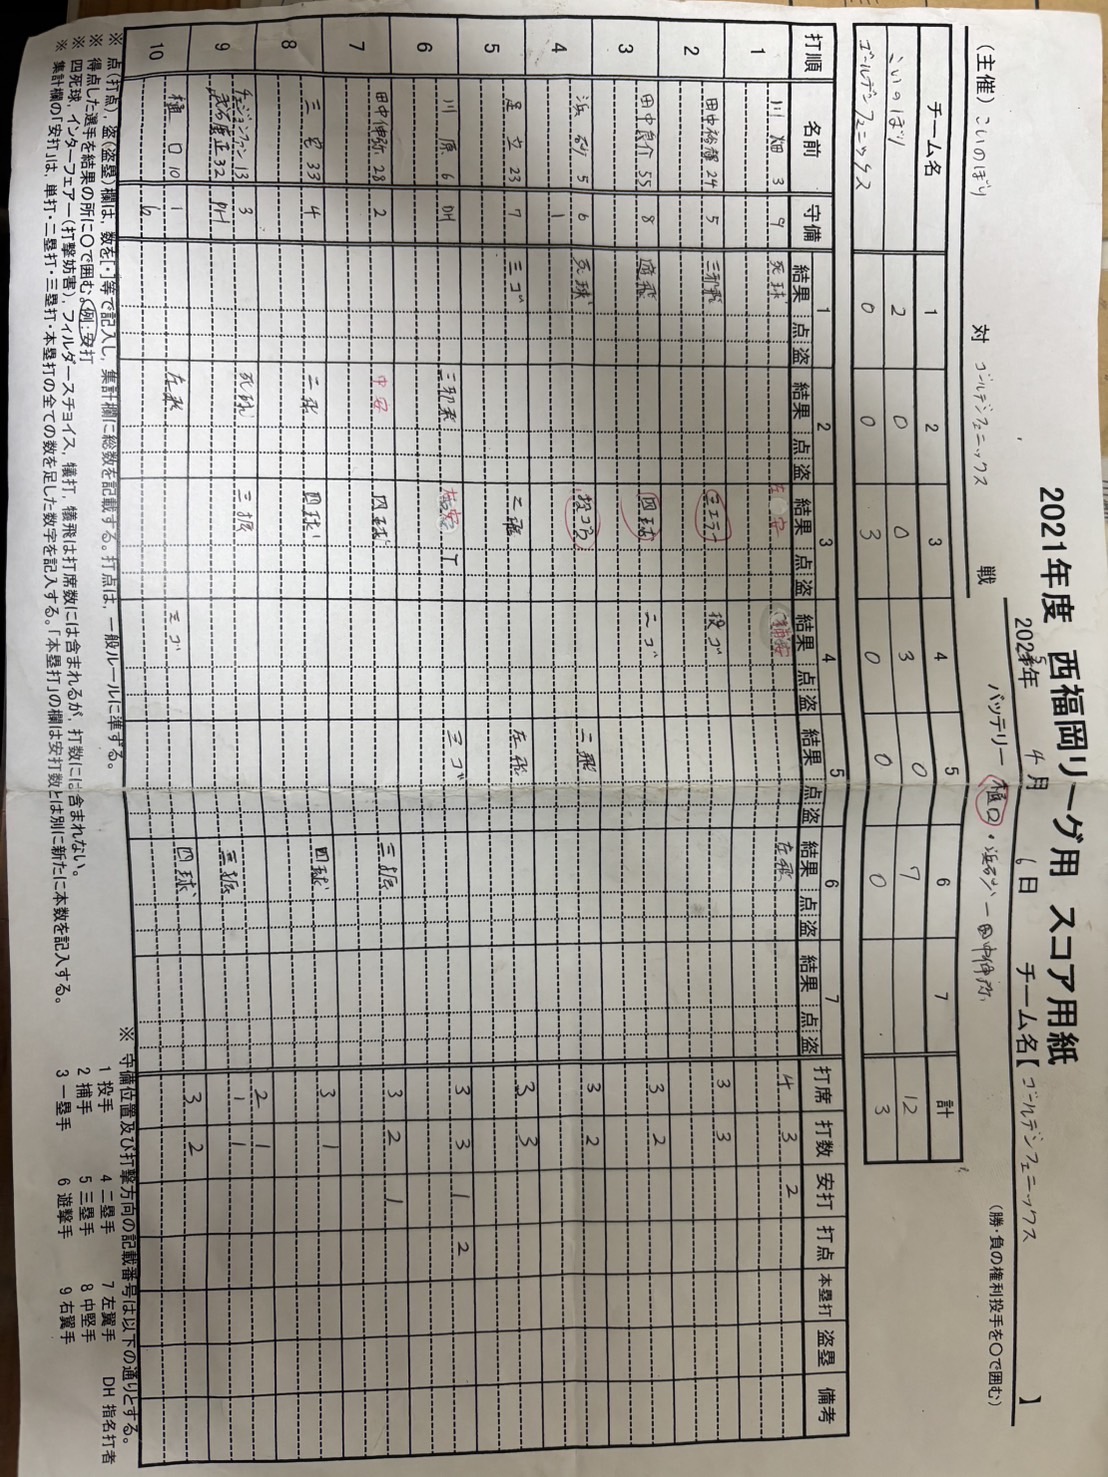 2021年度 西福岡リーグ用 スコア用紙
2025年 4月 6日 チーム名【ゴールデンフェニックス】
(主催) こいのぼり 対 ゴールデンフェニックス 戦 バッテリー 樋口・浜砂ー田中伸弥 (勝・負の権利投手を〇で囲む)
チーム名 1 2 3 4 5 6 7 計
こいのぼり 2 0 0 3 0 7 12
ゴールデンフェニックス 0 0 3 0 0 0 3
打順 名前 守備 1 2 3 4 5 6 7 打席 打数 安打 打点 本塁打 盗塁 備考
結果 点 盗 結果 点 盗 結果 点 盗 結果 点 盗 結果 点 盗 結果 点 盗 結果 点 盗
1 川畑 3 9 死球 左安 安 左飛 4 3 2
2 田中裕輝 24 5 三邪飛 三エラー 投ゴ 3 3
3 田中良介 55 8 遊飛 四球 二ゴ 3 2
4 浜砂 5 6 死球 投ゴ 二飛 3 2
1
5 足立 23 7 三ゴ 二飛 左飛 3 3
6 川原 6 DH 三邪飛 左安 T 三ゴ 3 3 1 2
7 田中伸弥 28 2 中安 四球 三振 3 2 1
8 三宅 33 4 二飛 四球 四球 3 1
9 13 3 死球 三振 2 1
正 32 PH 三振 1 1
10 樋口 10 1 左飛 三ゴ 四球 3 2
6
※ 点(打点)、盗(盗塁)欄は、数を[・]等で記入し、集計欄に総数を記載する。打点は、一般ルールに準ずる。
※ 得点した選手を結果の所に〇で囲む。例:安打
※ 四死球、インターフェアー(打撃妨害)、フィルダースチョイス、犠打、犠飛は打席数には含まれるが、打数には含まれない。
※ 集計欄の「安打」は、単打・二塁打・三塁打・本塁打の全ての数を足した数字を記入する。「本塁打」の欄は安打数とは別に新たに本数を記入する。
※ 守備位置及び打撃方向の記載番号は以下の通りとする。
1 投手 4 二塁手 7 左翼手 DH 指名打者
2 捕手 5 三塁手 8 中堅手
3 一塁手 6 遊撃手 9 右翼手